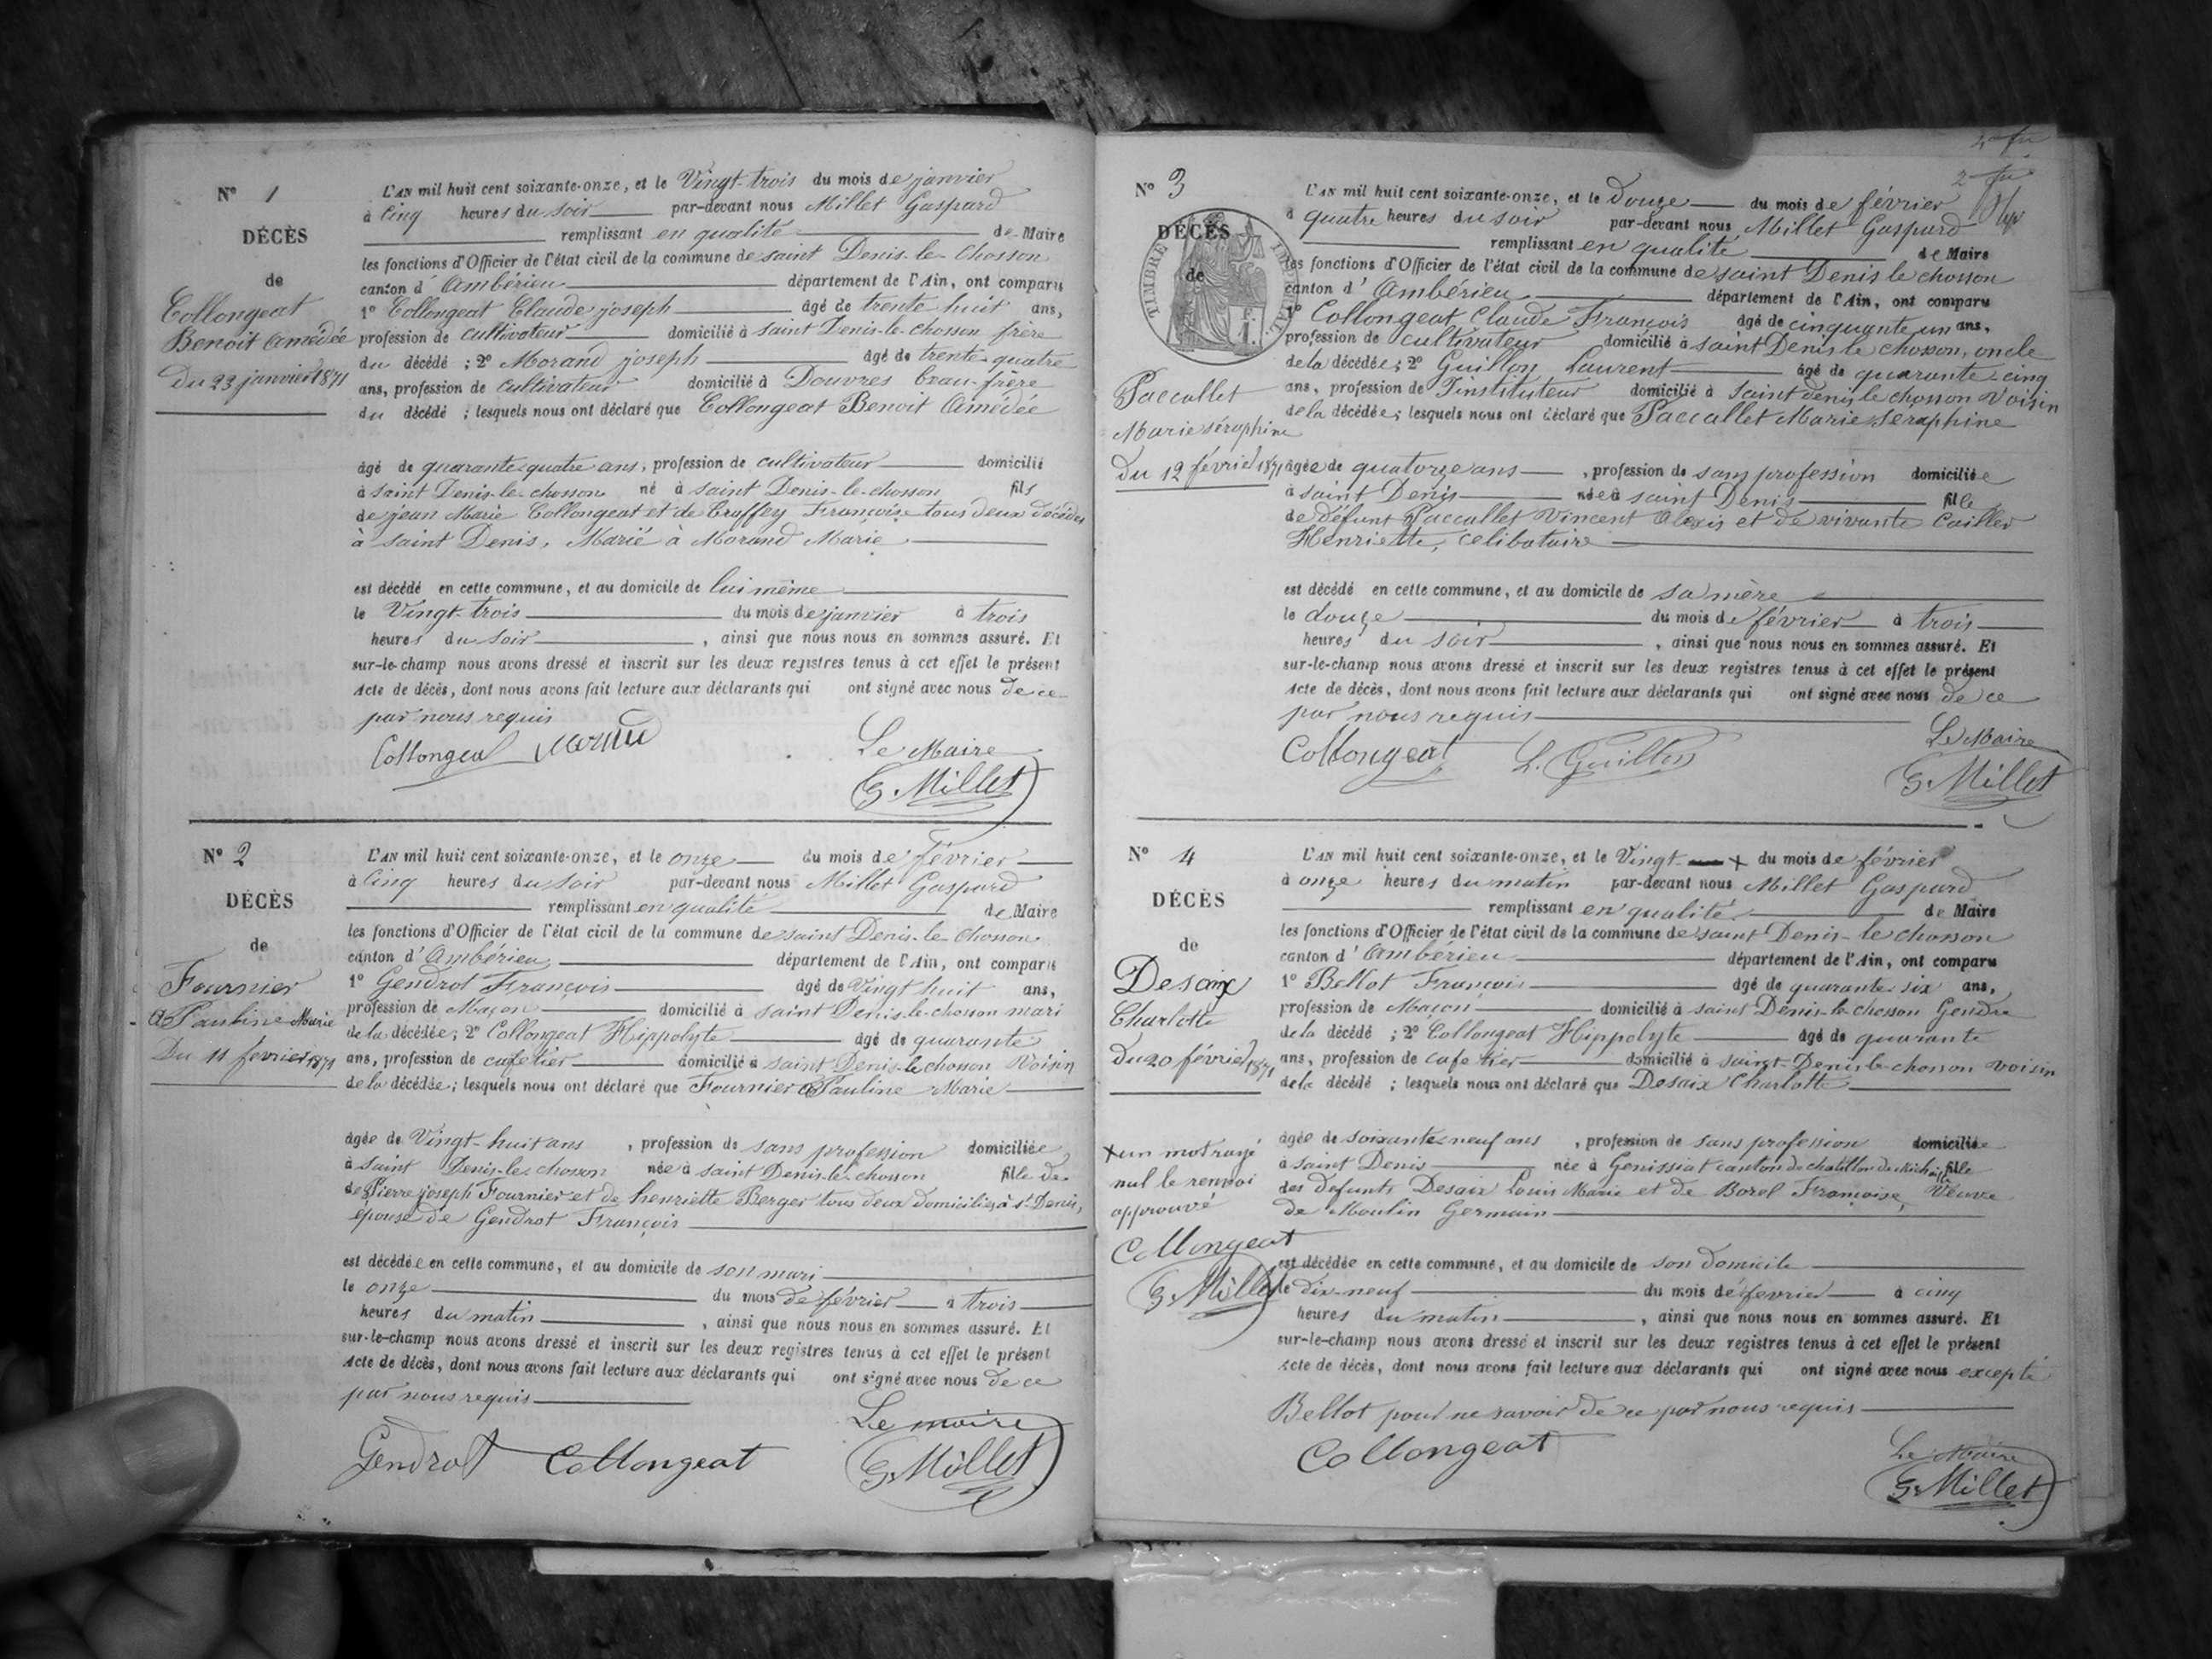 N° 1
DÉCÈS
de
Collongeat
Benoit Amédée
Du 23 janvier 1871
L'AN mil huit cent soixante-onze, et le Vingt-trois du mois de janvier
à Cinq heures du soir par-devant nous Millet Gaspard
remplissant en qualité de Maire
les fonctions d'Officier de l'état civil de la commune de saint Denis-le-Chosson
canton d'Ambérieu département de l'Ain, ont comparu
1° Collongeat Claude joseph âgé de trente huit ans,
profession de cultivateur domicilié à saint Denis-le-chosson frère
du décédé ; 2° Morand joseph âgé de trente-quatre
ans, profession de cultivateur domicilié à Douvres beau-frère
du décédé ; lesquels nous ont déclaré que Collongeat Benoit Amédée
âgé de quarante-quatre ans, profession de cultivateur domicilié
à saint Denis-le-chosson né à saint Denis-le-chosson fils
de jean Marie Collongeat et de Françoise tous deux décédés
à saint Denis, Marié à Morand Marie
est décédé en cette commune, et au domicile de lui même
le Vingt-trois du mois de janvier à trois
heures du soir, ainsi que nous nous en sommes assuré. Et
sur-le-champ nous avons dressé et inscrit sur les deux registres tenus à cet effet le présent
Acte de décès, dont nous avons fait lecture aux déclarants qui ont signé avec nous de ce
par nous requis
Collongeat Morand Le Maire
G. Millet
N° 2
DÉCÈS
de
Fournier
Pauline Marie
Du 11 février 1871
L'AN mil huit cent soixante-onze, et le onze du mois de février
à Cinq heures du soir par-devant nous Millet Gaspard
remplissant en qualité de Maire
les fonctions d'Officier de l'état civil de la commune de saint Denis-le-Chosson
canton d'Ambérieu département de l'Ain, ont comparu
1° Gendrot François âgé de Vingt huit ans,
profession de Maçon domicilié à saint Denis-le-chosson mari
de la décédée ; 2° Collongeat Hippolyte âgé de quarante
ans, profession de cafetier domicilié à saint Denis-le chosson Voisin
de la décédée ; lesquels nous ont déclaré que Fournier Pauline Marie
âgée de Vingt-huit ans, profession de sans profession domiciliée
à saint Denis-le-chosson née à saint Denis-le-chosson fille de
de Pierre joseph Fournier et de henriette Berger tous deux domiciliés à St Denis,
épouse de Gendrot François
est décédée en cette commune, et au domicile de son mari
le onze du mois de février à trois
heures du matin, ainsi que nous nous en sommes assuré. Et
sur-le-champ nous avons dressé et inscrit sur les deux registres tenus à cet effet le présent
Acte de décès, dont nous avons fait lecture aux déclarants qui ont signé avec nous de ce
par nous requis
Le maire
Gendrot Collongeat G. Millet
N° 3
DÉCÈS
de
TIMBRE IMPÉRIAL
Paccallet
Marie séraphine
Du 12 février 1871
L'AN mil huit cent soixante-onze, et le Douze du mois de février
à quatre heures du soir par-devant nous Millet Gaspard
remplissant en qualité de Maire
les fonctions d'Officier de l'état civil de la commune de saint Denis le chosson
canton d'Ambérieu département de l'Ain, ont comparu
1° Collongeat Claude François âgé de cinquante un ans,
profession de cultivateur domicilié à saint Denis le chosson, oncle
de la décédée ; 2° Guillon Laurent âgé de quarante-cinq
ans, profession de instituteur domicilié à saint denis le chosson Voisin
de la décédée ; lesquels nous ont déclaré que Paccallet Marie séraphine
âgée de quatorze ans, profession de sans profession domiciliée
à saint Denis née à saint Denis fille
de défunt Paccallet Vincent Alexis et de vivante Cailler
Henriette, celibataire
est décédé en cette commune, et au domicile de sa mère
le douze du mois de février à trois
heures du soir, ainsi que nous nous en sommes assuré. Et
sur-le-champ nous avons dressé et inscrit sur les deux registres tenus à cet effet le présent
Acte de décès, dont nous avons fait lecture aux déclarants qui ont signé avec nous de ce
par nous requis
Le Maire
Collongeat L. Guillon G. Millet
N° 4
DÉCÈS
de
Desaix
Charlotte
du 20 février 1871
L'AN mil huit cent soixante-onze, et le Vingt x du mois de février
à onze heures du matin par-devant nous Millet Gaspard
remplissant en qualité de Maire
les fonctions d'Officier de l'état civil de la commune de saint Denis-le chosson
canton d'Ambérieu département de l'Ain, ont comparu
1° Bellot François âgé de quarante six ans,
profession de Maçon domicilié à saint Denis-le chosson Gendre
de la décédé ; 2° Collongeat Hippolyte âgé de quarante
ans, profession de cafetier domicilié à saint-Denis-le-chosson voisin
de la décédé ; lesquels nous ont déclaré que Desaix Charlotte
âgée de soixante-neuf ans, profession de sans profession domiciliée
à saint Denis née à Genissiat canton de chatillon de Michaille fille
des defunts Desaix Louis Marie et de Borel Françoise, Veuve
de Moulin Germain
x un mot rayé
nul le renvoi
approuvé
Collongeat
G. Millet
est décédée en cette commune, et au domicile de son domicile
le dix-neuf du mois de fevrier à cinq
heures du matin, ainsi que nous nous en sommes assuré. Et
sur-le-champ nous avons dressé et inscrit sur les deux registres tenus à cet effet le présent
Acte de décès, dont nous avons fait lecture aux déclarants qui ont signé avec nous excepté
Bellot pour ne savoir de ce par nous requis
Collongeat Le Maire
G. Millet